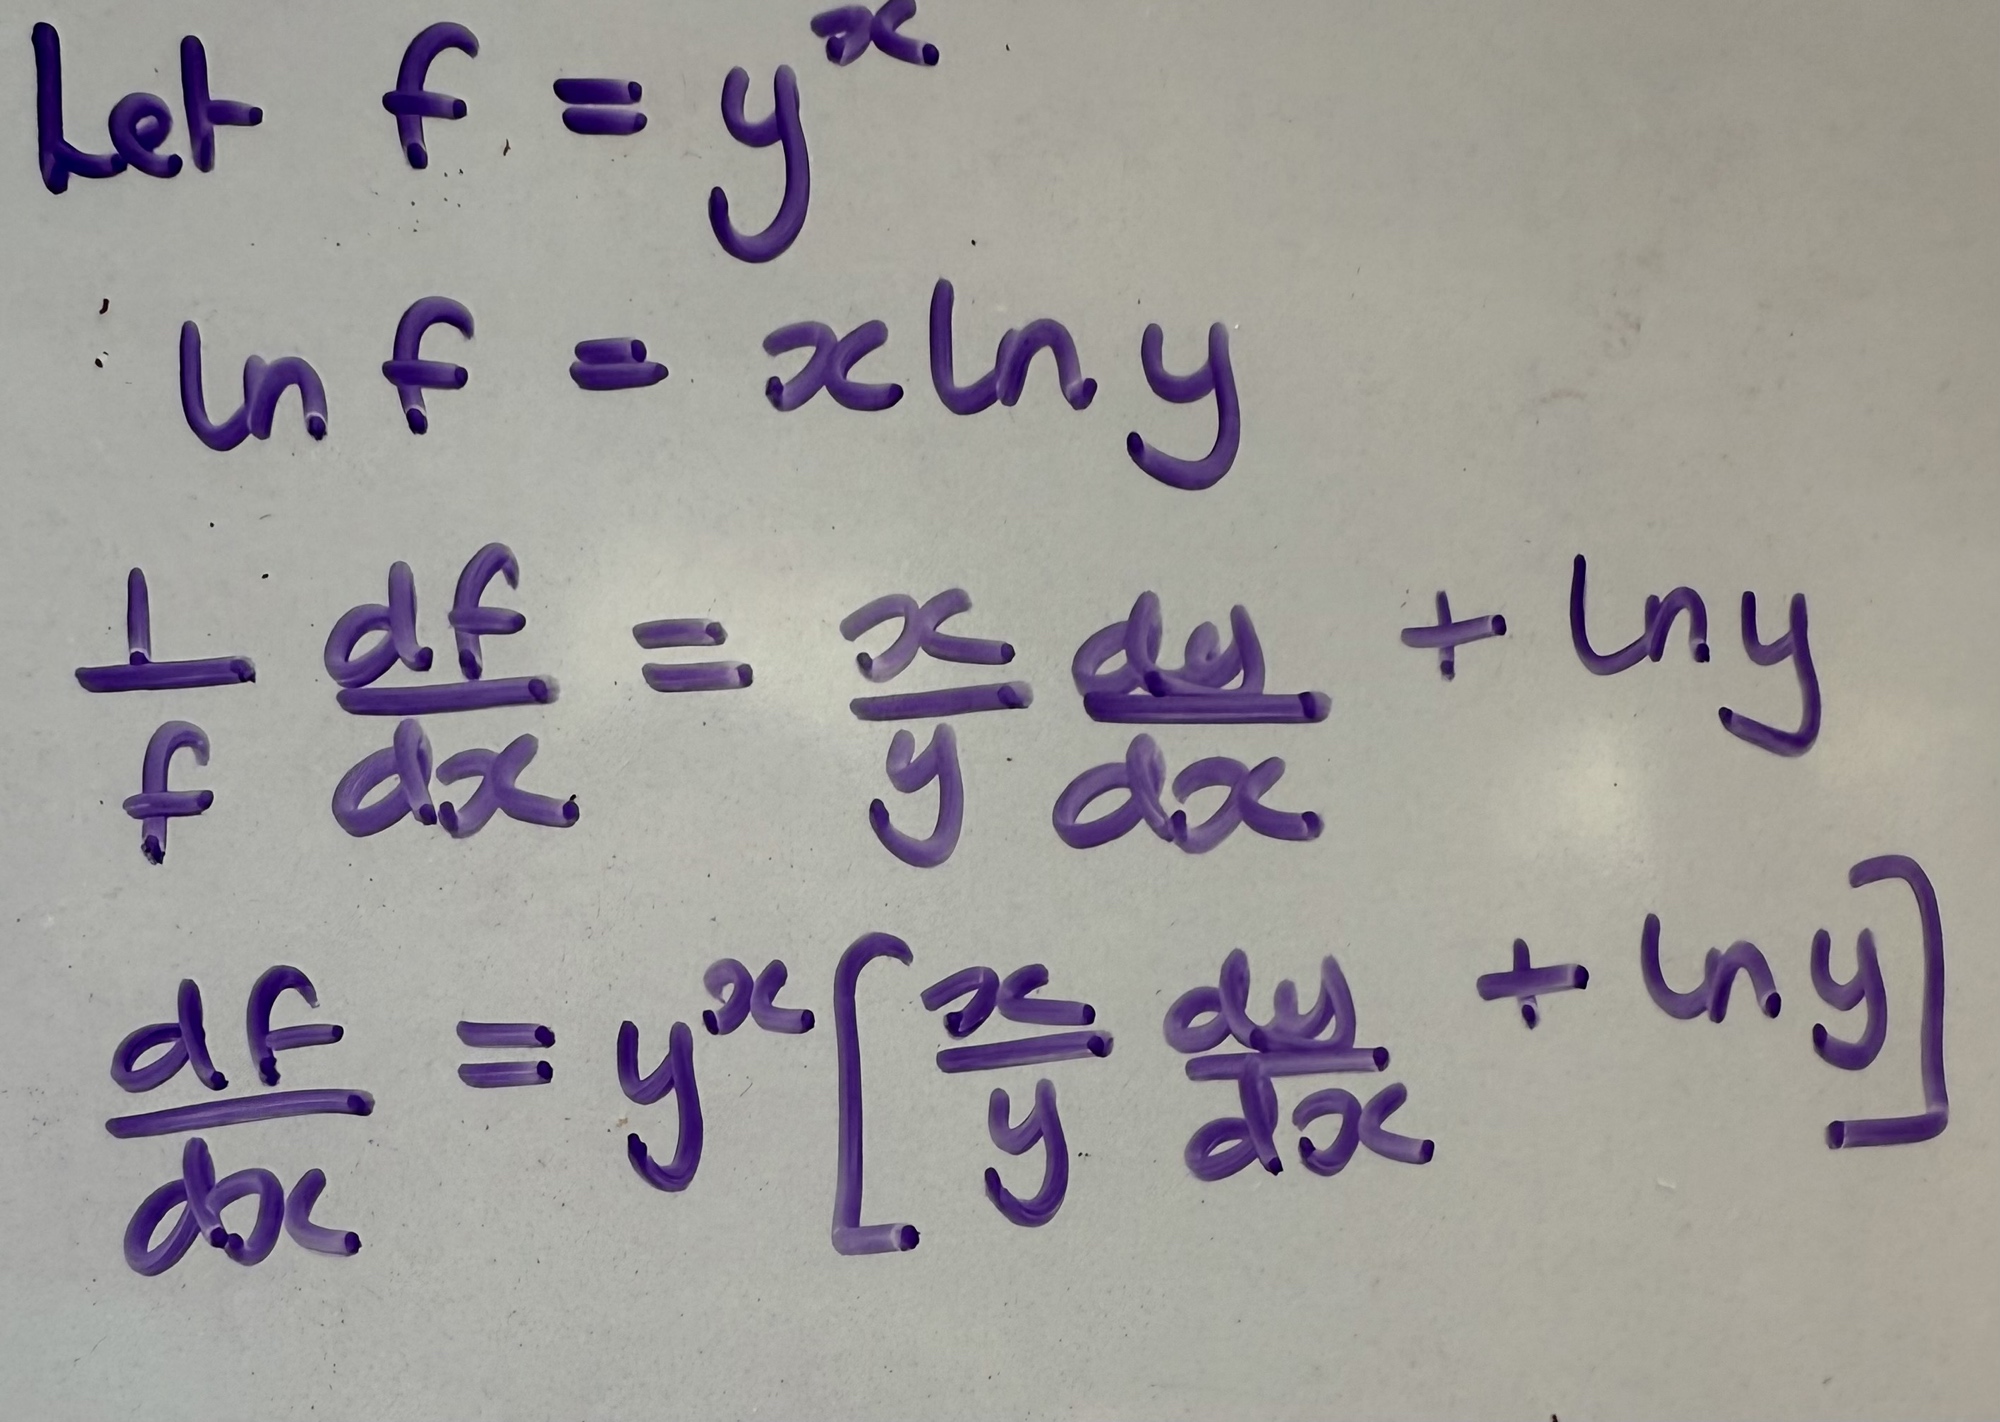 Let f = y^x
ln f = x ln y
1/f df/dx = x/y dy/dx + ln y
df/dx = y^x [x/y dy/dx + ln y]